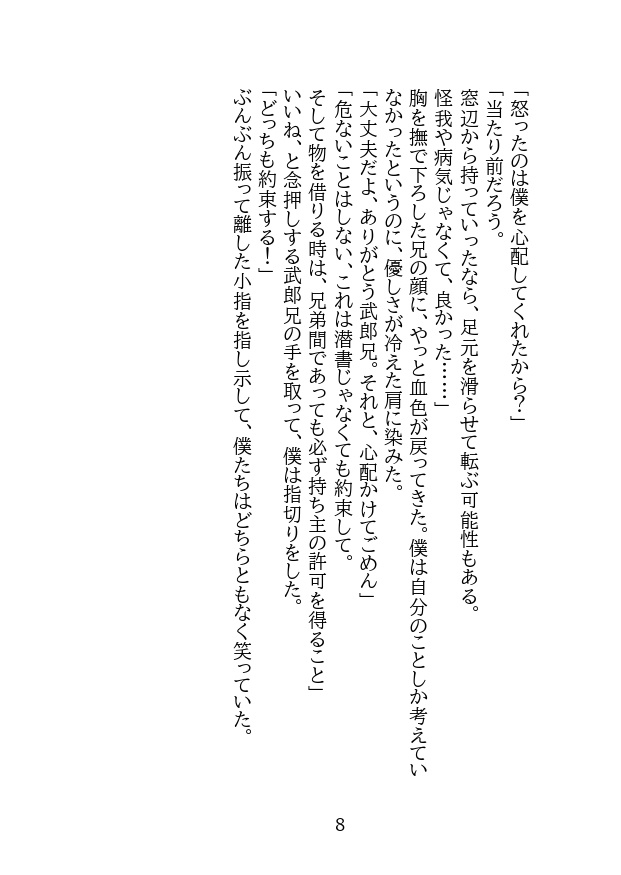 「怒ったのは僕を心配してくれたから？」
「当たり前だろう。
窓辺から持っていったなら、足元を滑らせて転ぶ可能性もある。
怪我や病気じゃなくて、良かった……」
胸を撫で下ろした兄の顔に、やっと血色が戻ってきた。僕は自分のことしか考えてい
なかったというのに、優しさが冷えた肩に染みた。
「大丈夫だよ、ありがとう武郎兄。それと、心配かけてごめん」
「危ないことはしない、これは潜書じゃなくても約束して。
そして物を借りる時は、兄弟間であっても必ず持ち主の許可を得ること」
いいね、と念押しする武郎兄の手を取って、僕は指切りをした。
「どっちも約束する！」
ぶんぶん振って離した小指を指し示して、僕たちはどちらともなく笑っていた。
8